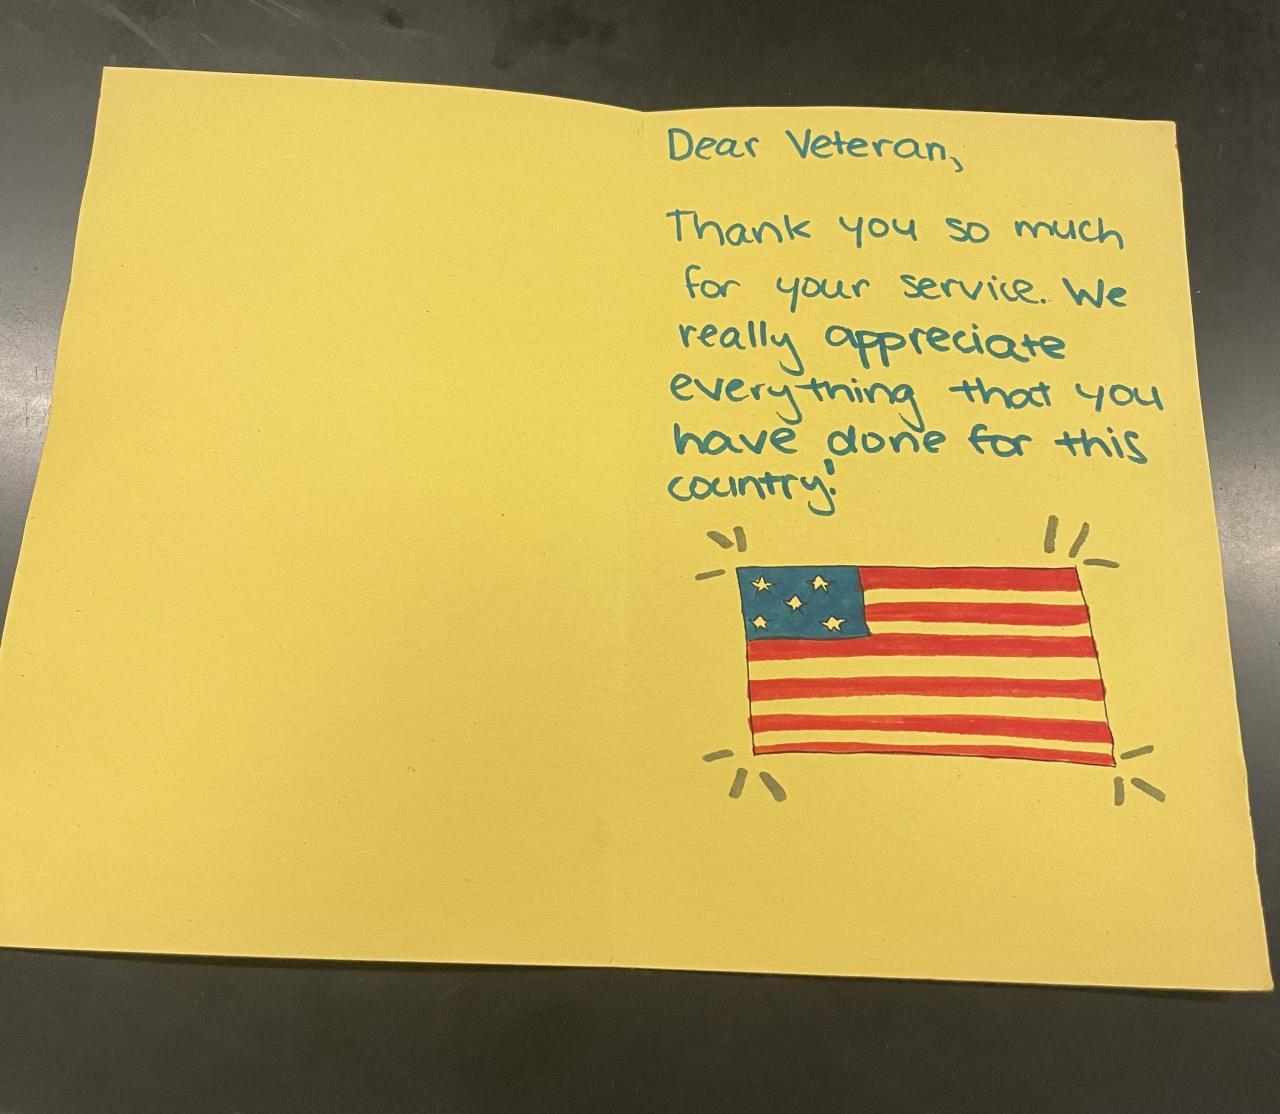 Dear Veteran,
Thank you so much
for your service. We
really appreciate
everything that you
have done for this
country!